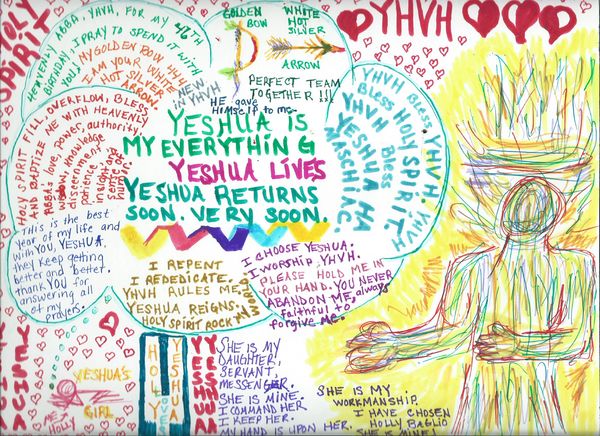 HOLY
SPIRIT
HEAVENLY ABBA, YHVH, FOR MY 46TH
BIRTHDAY, I PRAY TO SPEND IT WITH
YOU,
MY GOLDEN BOW. 4 YHVH
I AM YOUR WHITE
HOT SILVER
ARROW.
NEW
IN YHVH
GOLDEN
BOW
WHITE
HOT
SILVER
ARROW
PERFECT TEAM
TOGETHER !!!
He gave
Himself to me.
YHVH
YHVH Bless YHVH. YHVH
Bless HOLY SPIRIT.
YHVH Bless
YESHUA HA
MASCHIAC.
HOLY SPIRIT FILL, OVERFLOW, BLESS,
AND BAPTIZE ME WITH HEAVENLY
ABBA'S love, power, authority,
wisdom, knowledge
discernment
patience
insight
and
YESHUA IS
MY EVERYTHING
YESHUA LIVES
YESHUA RETURNS
SOON. VERY SOON.
THIS is the best
year of my life and
with YOU, YESHUA,
they keep getting
better and better.
thank YOU for
answering all
of my
prayers.
I REPENT
I REDEDICATE.
YHVH RULES ME,
YESHUA REIGNS.
HOLY SPIRIT ROCK MY
WORLD
I CHOOSE YESHUA.
I WORSHIP YHVH.
PLEASE HOLD ME IN
YOUR HAND. YOU NEVER
ABANDON ME, always
faithful to
forgive me.
YESHUA'S
GIRL
ME
HOLLY
HOLY
LOVES
YESHUA
YESHUA
YESHUA
SHE IS MY
DAUGHTER,
SERVANT,
MESSENGER.
SHE IS MINE.
I COMMAND HER
I KEEP HER.
MY HAND IS UPON HER.
SHE IS MY
WORKMANSHIP.
I HAVE CHOSEN
HOLLY BAGLIO
SHE IS MINE!